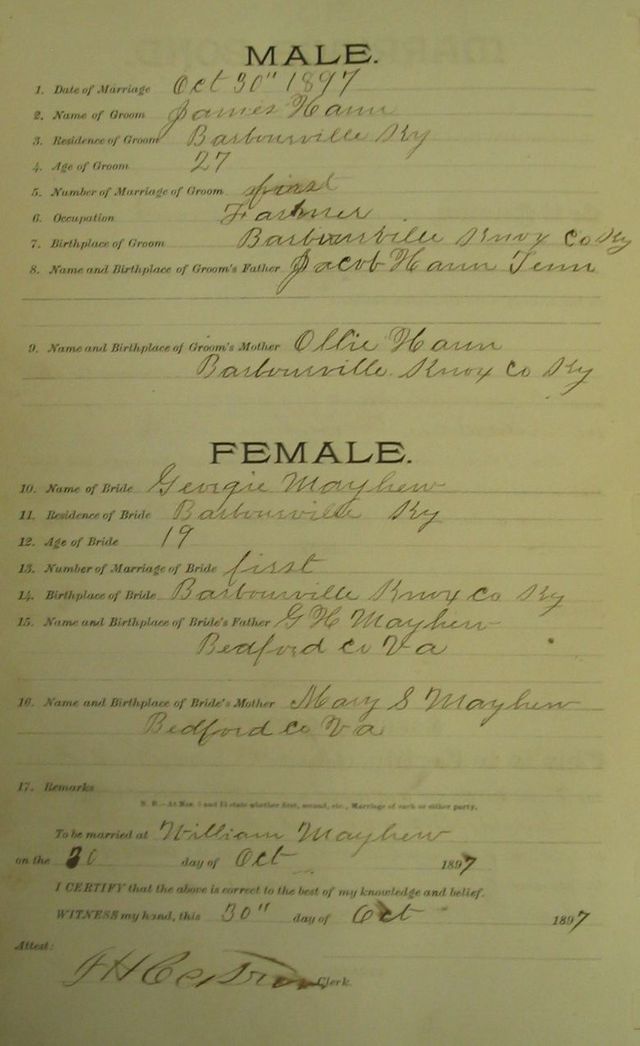 MALE.
1. Date of Marriage Oct 30" 1897
2. Name of Groom James Hann
3. Residence of Groom Barbourville Ky
4. Age of Groom 27
5. Number of Marriage of Groom first
6. Occupation Farmer
7. Birthplace of Groom Barbourville Knox Co Ky
8. Name and Birthplace of Groom's Father Jacob Hann Tenn
9. Name and Birthplace of Groom's Mother Ollie Hann
Barbourville Knox Co Ky
FEMALE.
10. Name of Bride Georgie Mayhew
11. Residence of Bride Barbourville Ky
12. Age of Bride 19
13. Number of Marriage of Bride first
14. Birthplace of Bride Barbourville Knox Co Ky
15. Name and Birthplace of Bride's Father G H Mayhew
Bedford Co Va
16. Name and Birthplace of Bride's Mother Mary S Mayhew
Bedford Co Va
17. Remarks
N. B.—At Nos. 5 and 13 state whether first, second, etc., Marriage of each or either party.
To be married at William Mayhew
on the 30 day of Oct 1897
I CERTIFY that the above is correct to the best of my knowledge and belief.
WITNESS my hand, this 30" day of Oct 1897
Attest:
Clerk.